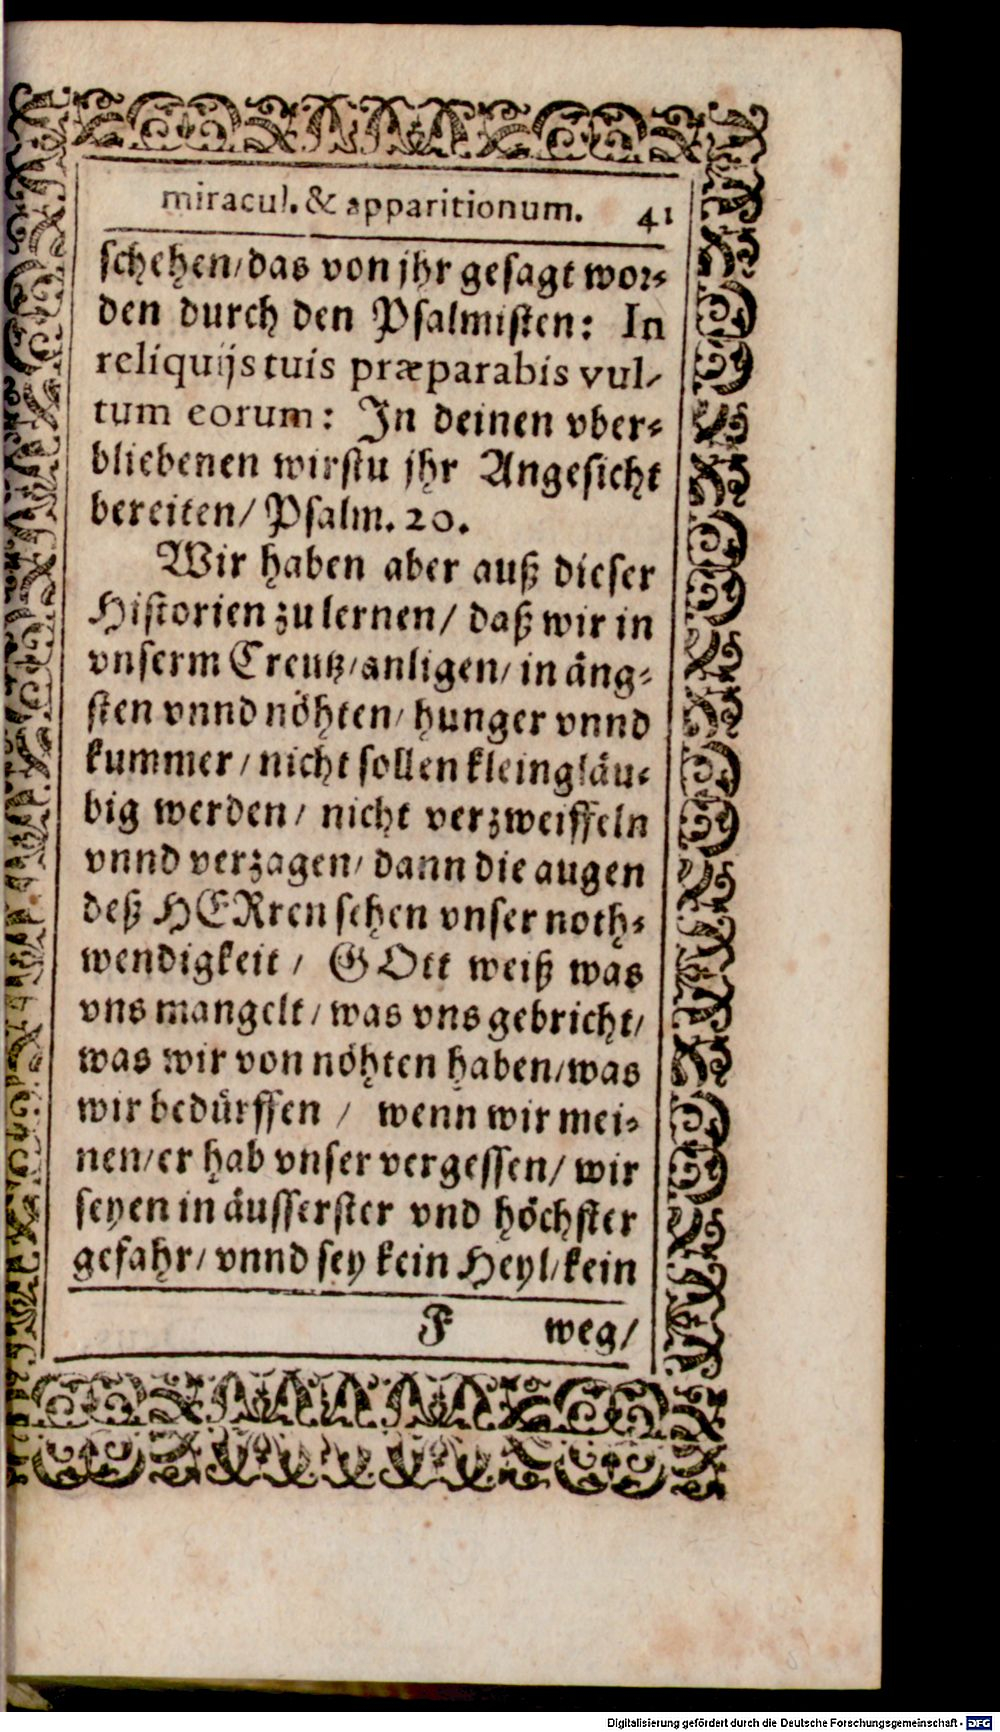 miracul. & apparitionum. 41
schehen/das von jhr gesagt wor-
den durch den Psalmisten: In
reliquijs tuis præparabis vul-
tum eorum: In deinen vber-
bliebenen wirstu jhr Angesicht
bereiten/ Psalm. 20.
Wir haben aber auß dieser
Historien zu lernen/ daß wir in
vnserm Creutz/anligen/ in äng-
sten vnnd nöhten/ hunger vnnd
kummer/ nicht sollen kleingläu-
big werden/ nicht verzweiffeln
vnnd verzagen/ dann die augen
deß HERren sehen vnser noth-
wendigkeit/ GOtt weiß was
vns mangelt/was vns gebricht/
was wir von nöhten haben/was
wir bedürffen / wenn wir mei-
nen/er hab vnser vergessen/ wir
seyen in äusserster vnd höchster
gefahr/ vnnd sey kein Heyl/kein
F weg/
Digitalisierung gefördert durch die Deutsche Forschungsgemeinschaft - DFG